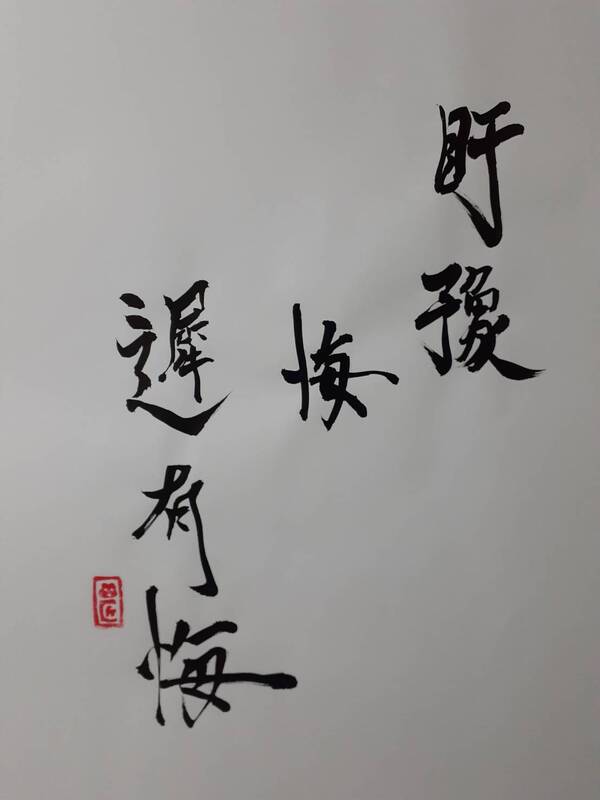 盱豫
悔
遲有悔